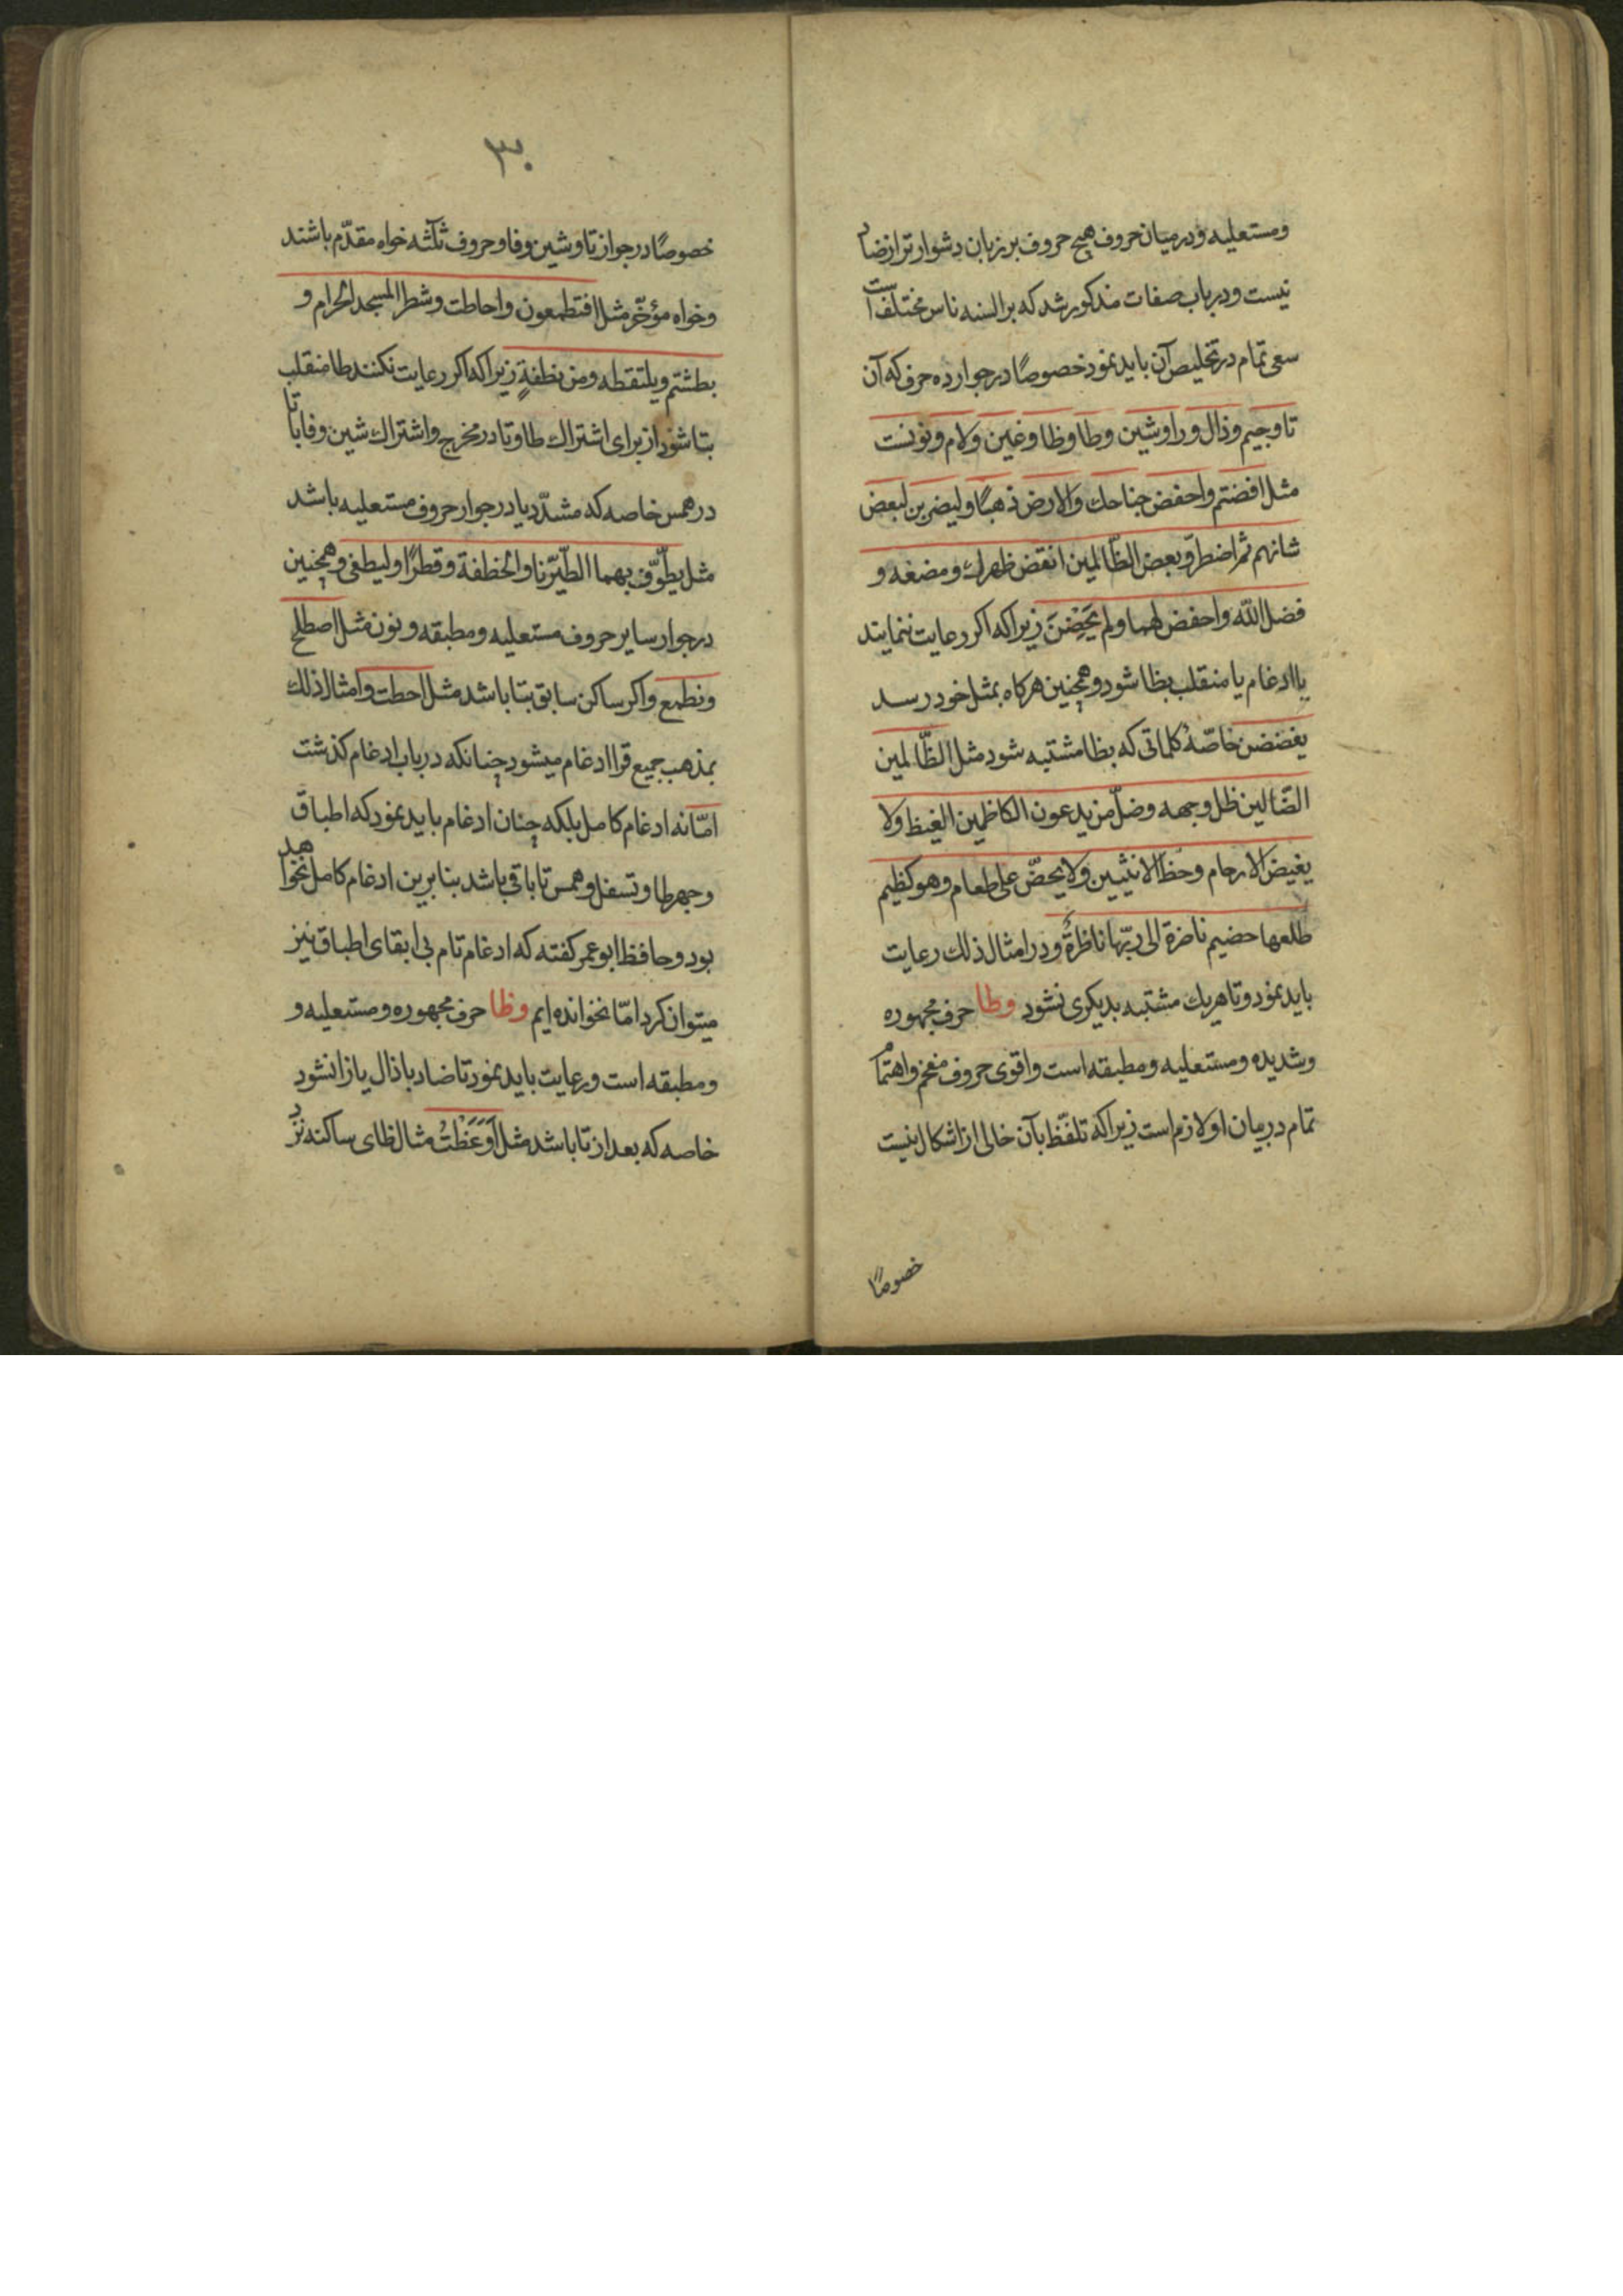 ومستعلیه ودرمیان حروف هیچ حروف بر زبان دشوار تر از ضاد
نیست و در باب صفات مذکور شد که بر السنه ناس مختلف است
سعی تمام در تخلیص آن باید نمود خصوصًا در جوار ده حرف که آن
تا وجیم وذال ورا وشین وطا وظا وغین ولام ونونست
مثل افضتم واخفض جناحك والارض ذهبًا ولیضربن لبعض
شانهم ثم اضطرّ وبعض الظّالمین انقض ظهرك ومضغه و
فضل الله واخفض لهما ولم یَحِضْنَ زیرا که اکر رعایت ننمایند
یا ادغام یا منقلب بظا شود وهمچنین هرکاه بمثل خود رسد
یغضضن خاصّهٔ کلماتی که بظا مشتبه شود مثل الظّالمین
الضّالین ظل وجهه وضلّ من یدعون الکاظمین الغیظ ولا
یغیض الارحام وحظ الانثیین ولا یحضّ علی طعام وهو کظیم
طلعها هضیم ناضرة الی ربّها ناظرةٌ ودر امثال ذلك رعایت
باید نمود و تا هریك مشتبه بدیکری نشود وطا حرف مجهوره
وشدیده ومستعلیه ومطبقه است واقوی حروف مفخم واهتمام
تمام در بیان او لازم است زیرا که تلفّظ بآن خالی از اشکال نیست
خصوصًا
۳۰
خصوصًا در جواز تا وشین وفا وحروف ثلثه خواه مقدّم باشند
وخواه مؤخّر مثل افتطمعون واحاطت وشطر المسجد الحرام و
بطشتم ویلتقطه ومن نطفةٍ زیرا که اکر رعایت نکنند طا منقلب
بتا شود از برای اشتراك طا وتا در مخرج واشتراك شین وفا با تا
در همس خاصه که مشدّد یا در جوار حروف مستعلیه باشد
مثل یطّوّف بهما اطّیّرنا والخطفة وقطرًا ولیطغی وهمچنین
در جوار سایر حروف مستعلیه ومطبقه ونون مثل اصطلح
ونطمع واکر ساکن سابق بتا باشد مثل احطت وامثال ذلك
بمذهب جمیع قرا ادغام میشود چنانکه در باب ادغام کذشت
امّا نه ادغام کامل بلکه چنان ادغام باید نمود که اطباق
وجهر طا وتسفل وهمس تا باقی باشد بنا برین ادغام کامل نخواهد
بود وحافظ ابو عمر کفته که ادغام تام بی ابقای اطباق نیز
میتوان کرد امّا نخوانده ایم وظا حرف مجهوره ومستعلیه و
ومطبقه است ورعایت باید نمود تا ضاد یا ذال یا زا نشود
خاصه که بعد از تا باشد مثل اَوَعَظْتَ مثال ظای ساکنه نزد